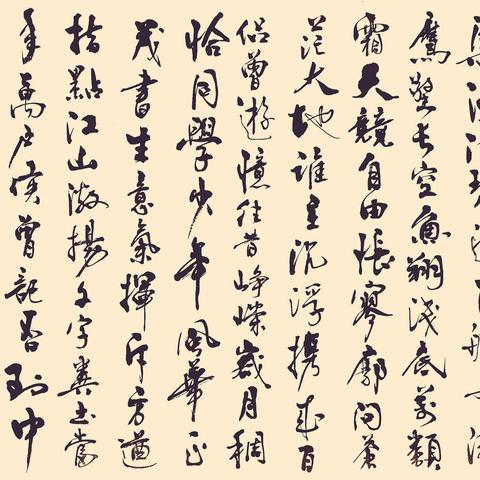 鷹擊長空魚翔淺底萬類
霜天競自由悵寥廓問蒼
茫大地誰主沉浮攜來百
侶曾遊憶往昔崢嶸歲月稠
恰同學少年風華正
茂書生意氣揮斥方遒
指點江山激揚文字糞土當
年萬戶侯曾記否到中